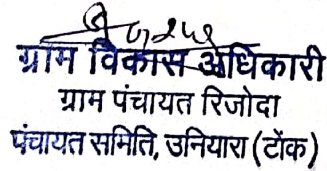 ग्राम विकास अधिकारी
ग्राम पंचायत रिजोदा
पंचायत समिति, उनियारा (टोंक)